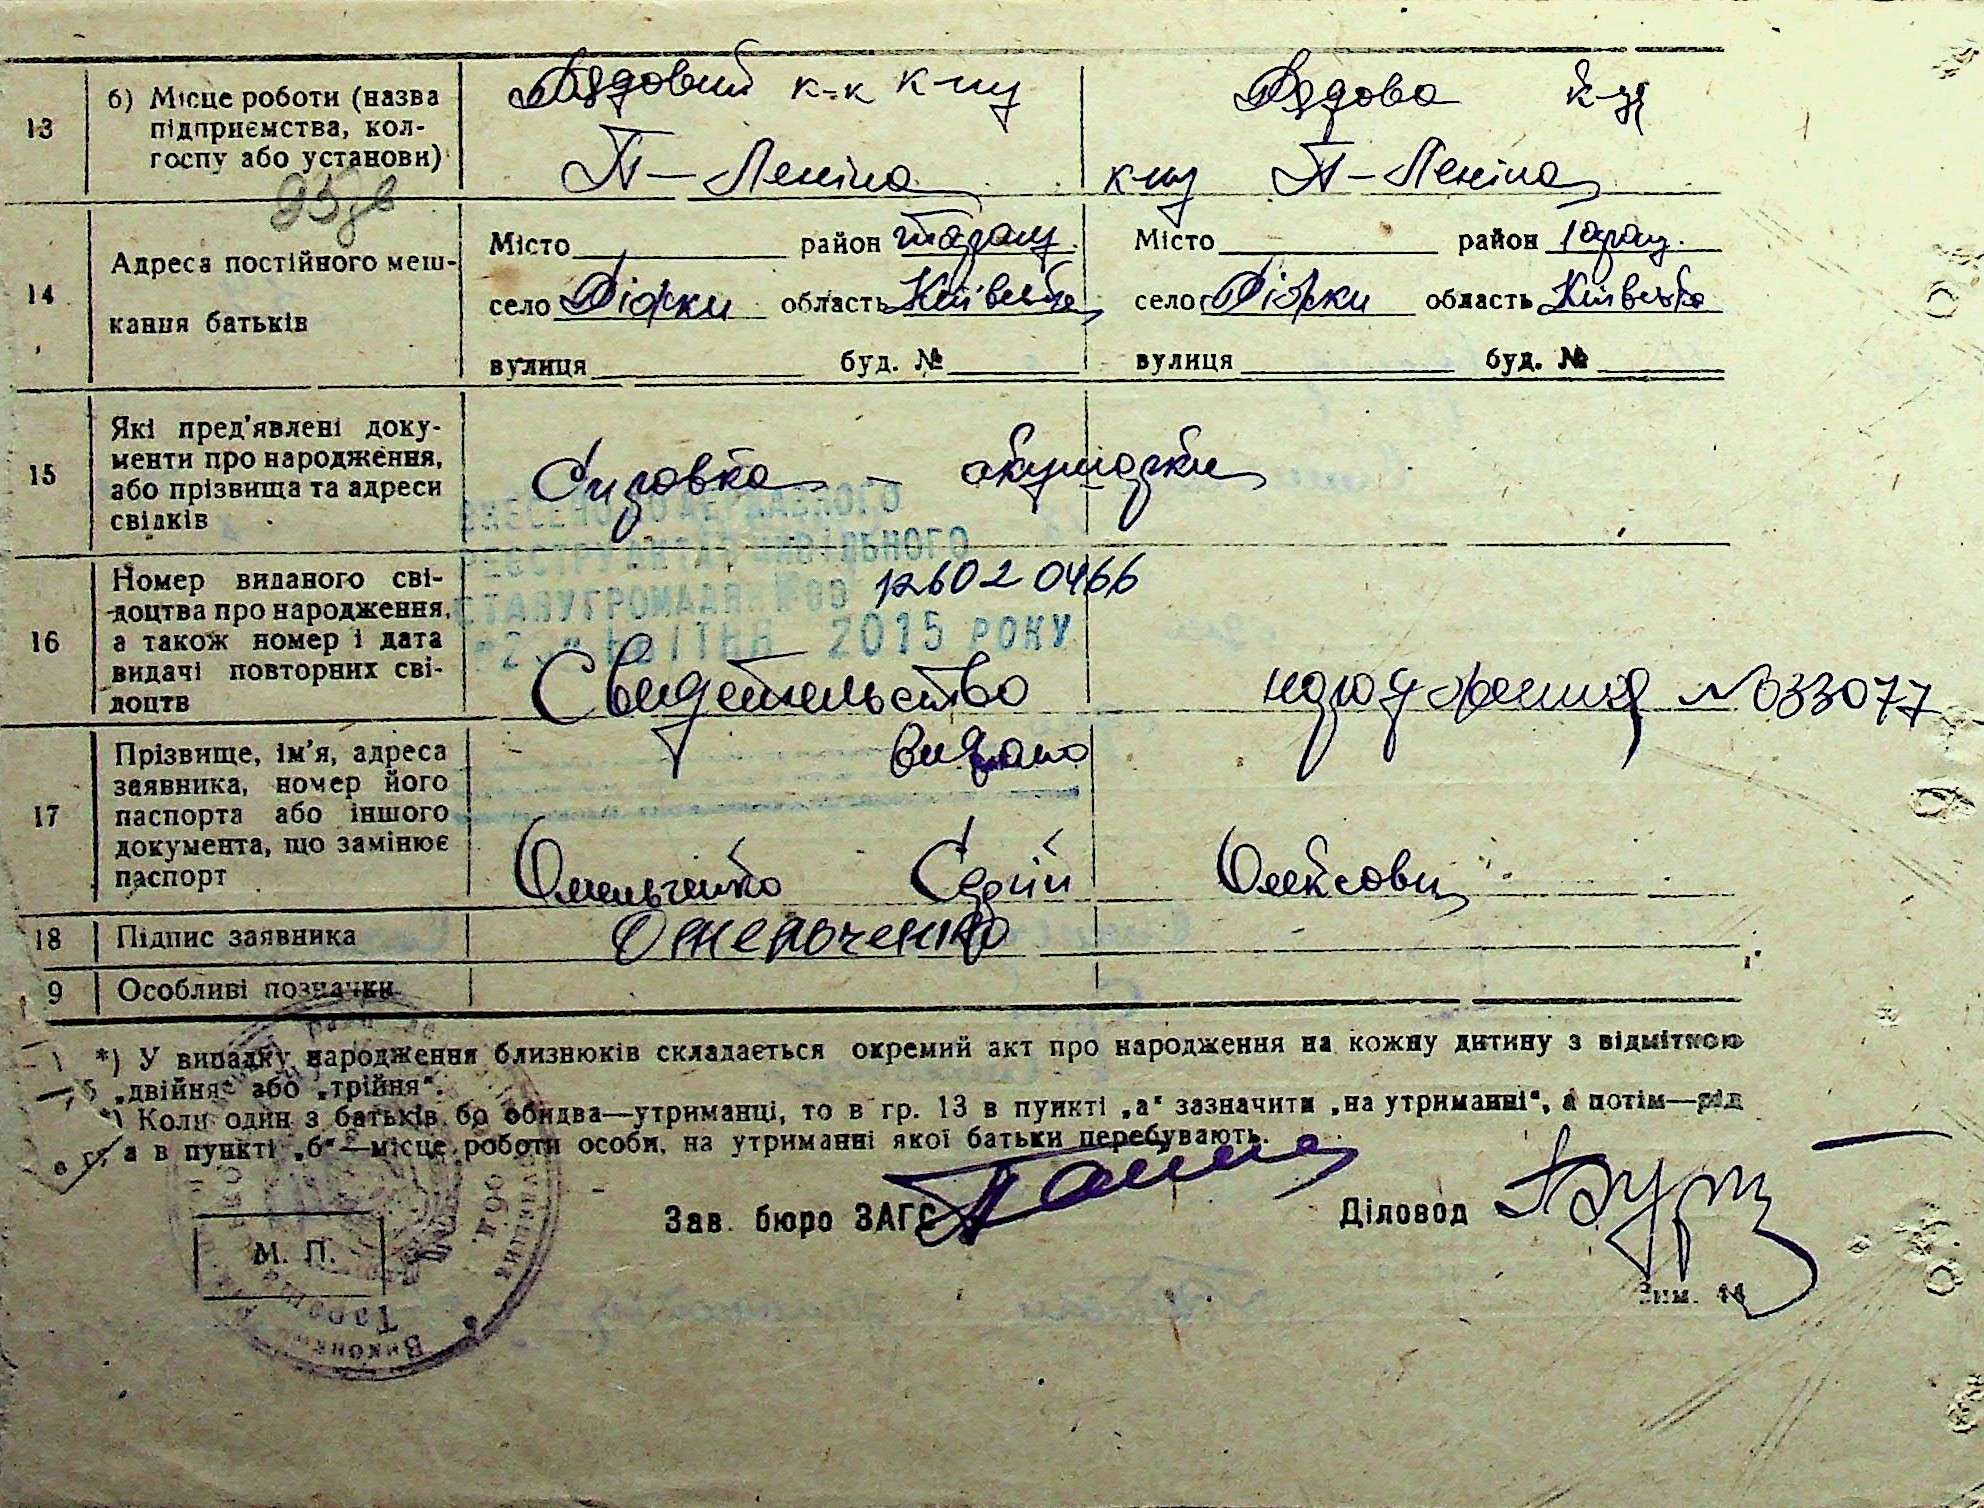 13
б) Місце роботи (назва
підприємства, кол-
госпу або установи)
Рядовий к-к к-пу
П-Леніна
Рядова к-
к-пу П-Леніна
14
Адреса постійного меш-
кання батьків
Місто район Таращ.
село область Київська
вулиця буд. №
Місто район Таращ.
село область Київська
вулиця буд. №
15
Які пред'явлені доку-
менти про народження,
або прізвища та адреси
свідків
Справка - акушерки
ВНЕСЕНО ДО ДЕРЖАВНОГО
РЕЄСТРУ АКТІВ ЦИВІЛЬНОГО
СТАНУ ГРОМАДЯН №00 12602 0466
КВІТНЯ 2015 РОКУ
16
Номер виданого сві-
доцтва про народження,
а також номер і дата
видачі повторних сві-
доцтв
Свидетельство нарождения №033077
видано
17
Прізвище, ім'я, адреса
заявника, номер його
паспорта або іншого
документа, що замінює
паспорт
Омельченко Сергій Олексович
18
Підпис заявника
Омельченко
9
Особливі позначки
*) У випадку народження близнюків складається окремий акт про народження на кожну дитину з відміткою
„двійня" або „трійня".
*) Коли один з батьків бо обидва—утриманці, то в гр. 13 в пункті „а" зазначити „на утриманні", а потім—рід
а в пункті „б"—місце роботи особи, на утриманні якої батьки перебувають.
Зав. бюро ЗАГС
Діловод
М. П.